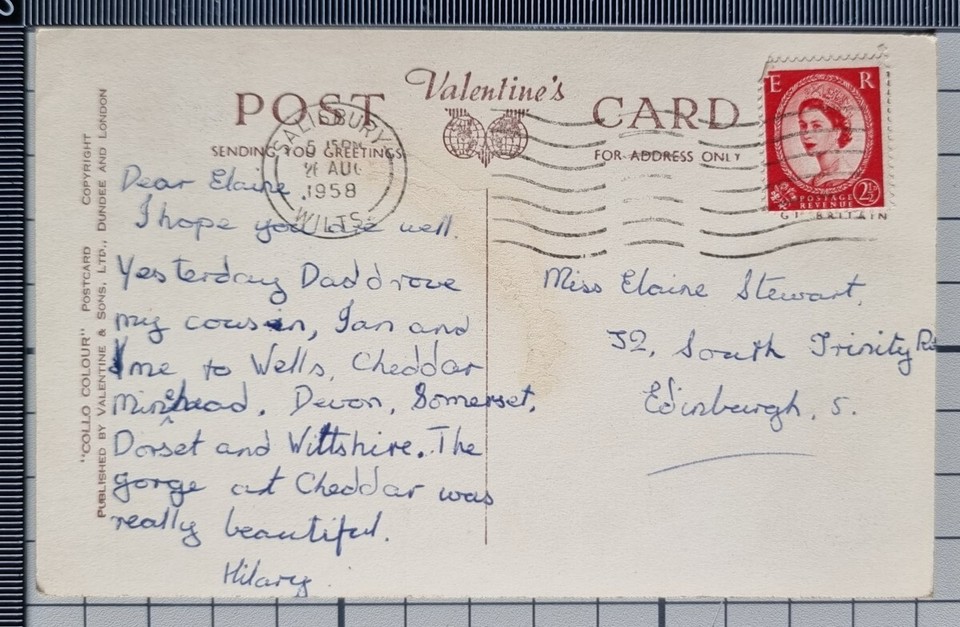 Valentine's
POST CARD
SENDING YOU GREETINGS
FOR ADDRESS ONLY
SALISBURY
5 15 PM
AUG
1958
WILTS
E R
POSTAGE
REVENUE
2½
GT BRITAIN
"COLLO COLOUR" POSTCARD COPYRIGHT
PUBLISHED BY VALENTINE & SONS, LTD., DUNDEE AND LONDON
Dear Elaine
I hope you are well.
Yesterday Dad drove
my cousin, Ian and
me to Wells, Cheddar
Minehead, Devon, Somerset,
Dorset and Wiltshire. The
gorge at Cheddar was
really beautiful.
Hilary.
Miss Elaine Stewart,
52, South Trinity Rd
Edinburgh, 5.